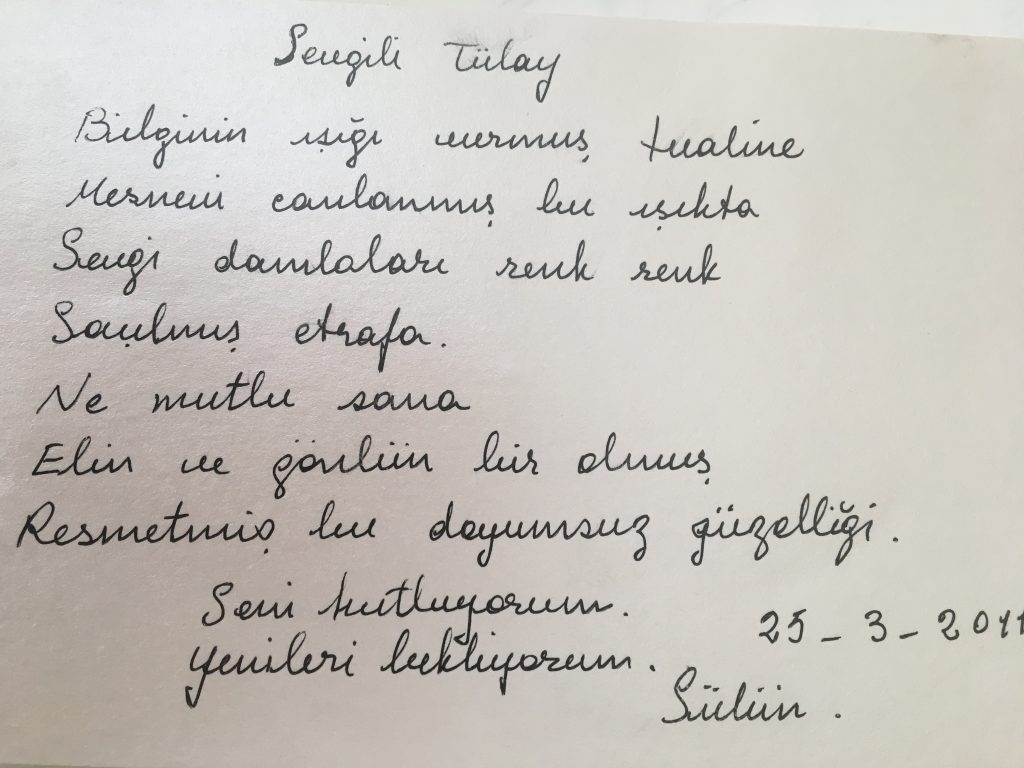 Sevgili Tülay
Bilginin ışığı vurmuş tualine
Mesnevi canlanmış bu ışıkta
Sevgi damlaları renk renk
Saçılmış etrafa.
Ne mutlu sana
Elin ve gönlün bir olmuş
Resmetmiş bu doyumsuz güzelliği.
Seni kutluyorum.
Yenileri bekliyorum.
25-3-2011
Sülün.